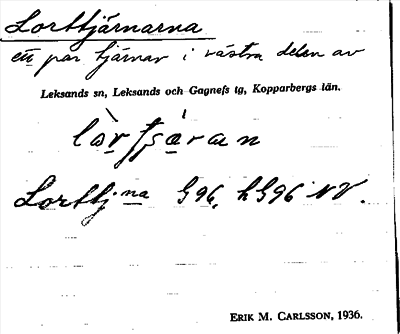 Lorttjärnarna
ett par tjärnar i västra delen av
Leksands sn, Leksands och Gagnefs tg, Kopparbergs län.
Lorttj:na G96, hG96 NV.
ERIK M. CARLSSON, 1936.